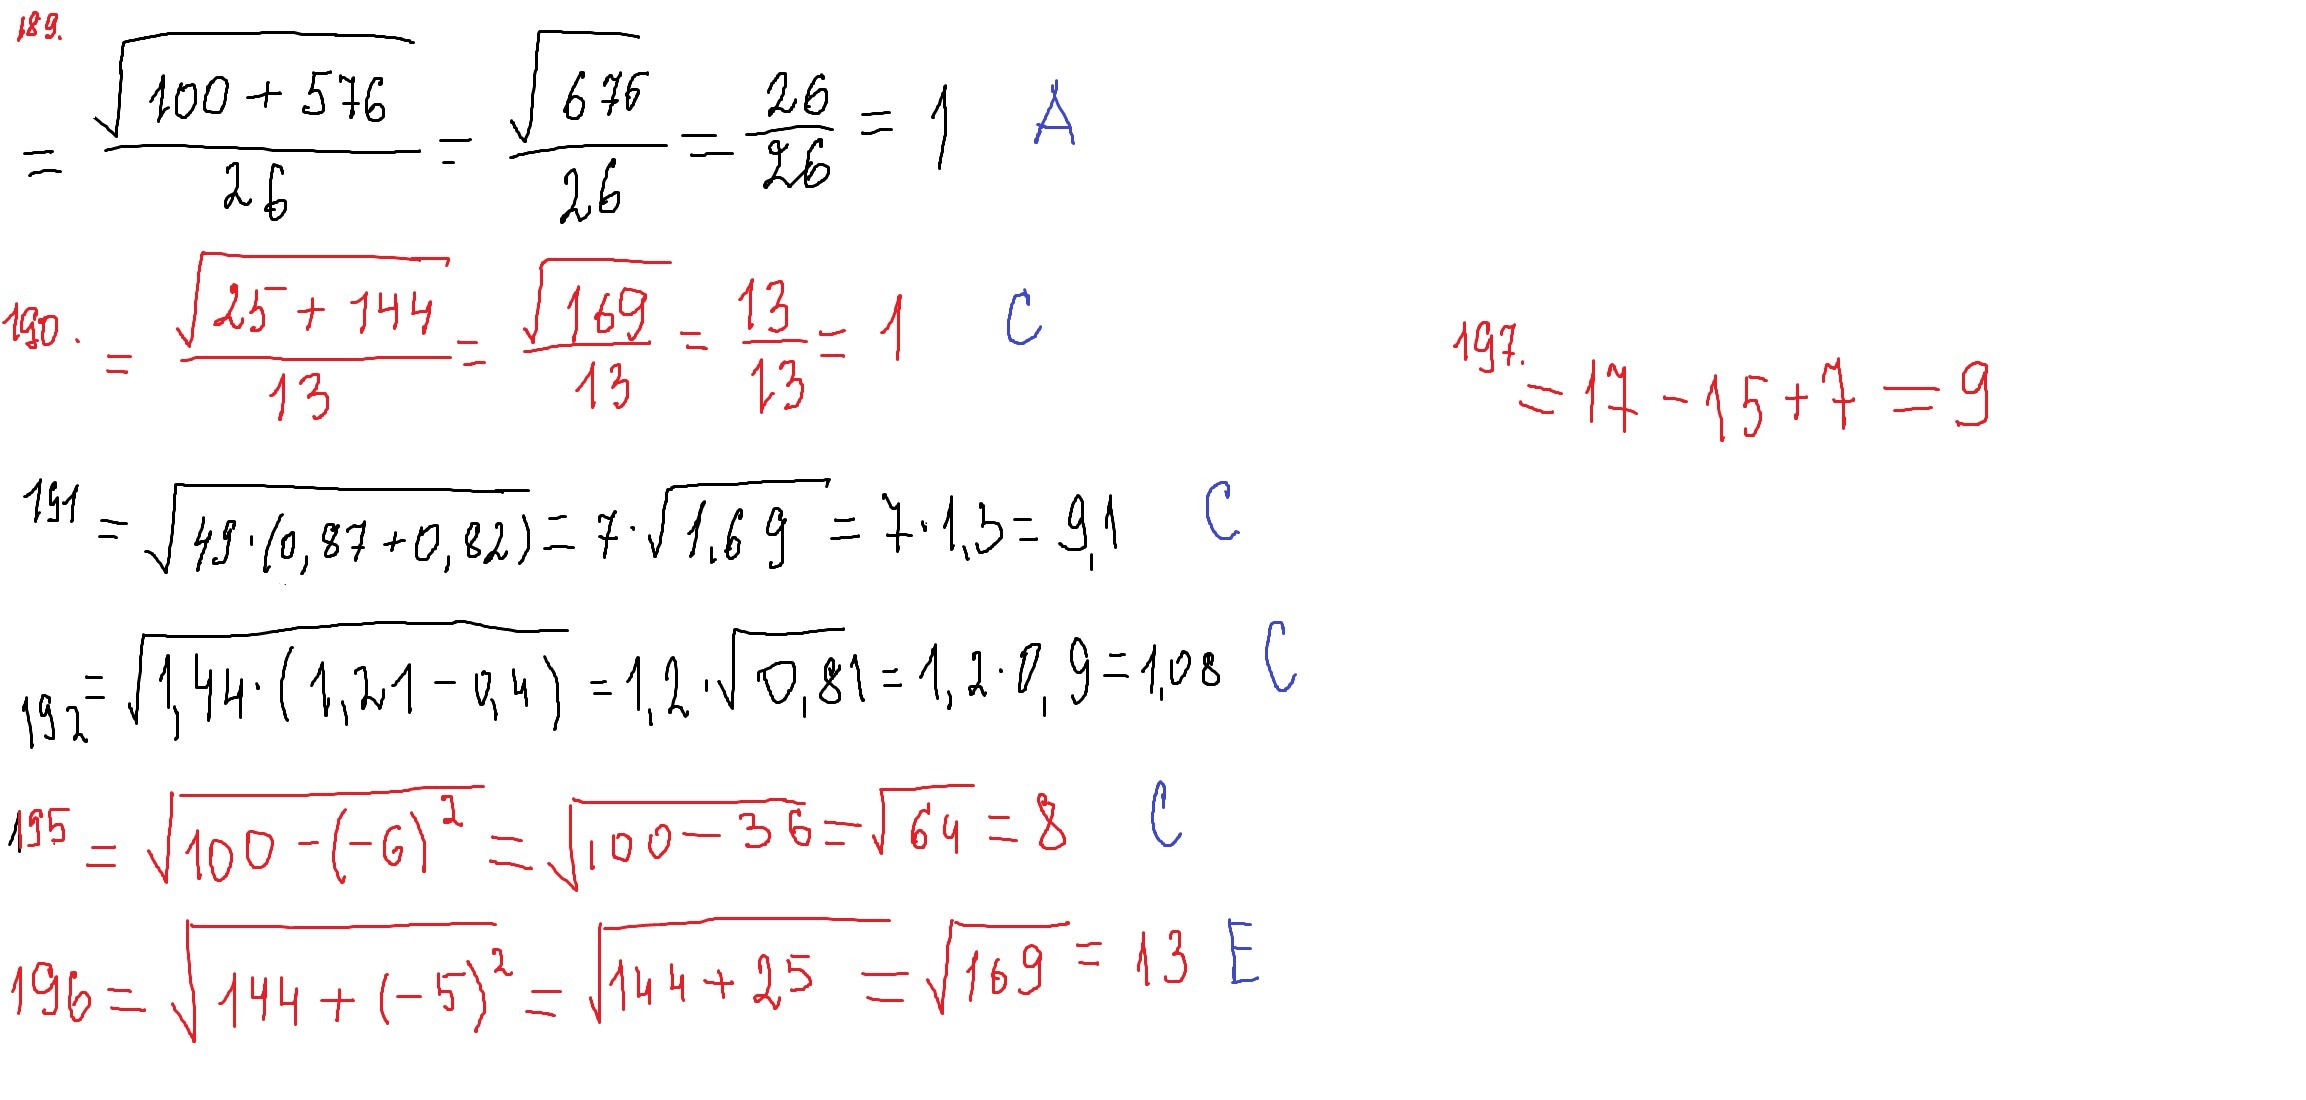 189.
= √(100 + 576) / 26 = √676 / 26 = 26/26 = 1 A
190. = √(25 + 144) / 13 = √169 / 13 = 13/13 = 1 C
197. = 17 - 15 + 7 = 9
191 = √(49·(0,87+0,82)) = 7·√1,69 = 7·1,3 = 9,1 C
192 = √(1,44·(1,21-0,4)) = 1,2·√0,81 = 1,2·0,9 = 1,08 C
195 = √(100-(-6)²) = √(100-36) = √64 = 8 C
196 = √(144+(-5)²) = √(144+25) = √169 = 13 E